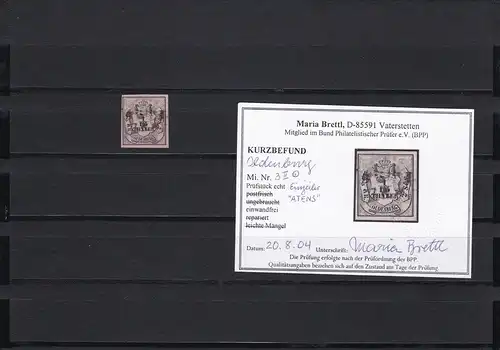 Maria Brettl, D-85591 Vaterstetten
Mitglied im Bund Philatelistischer Prüfer e.V. (BPP)
KURZBEFUND
Oldenburg
Mi. Nr. 3
Prüfstück echt Einzeiler
postfrisch "ATENS"
ungebraucht
einwandfrei
repariert
leichte Mängel
Datum: 20.8.04 Unterschrift: Maria Brettl
Die Prüfung erfolgte nach der Prüfordnung des BPP.
Qualitätsangaben beziehen sich auf den Zustand am Tage der Prüfung